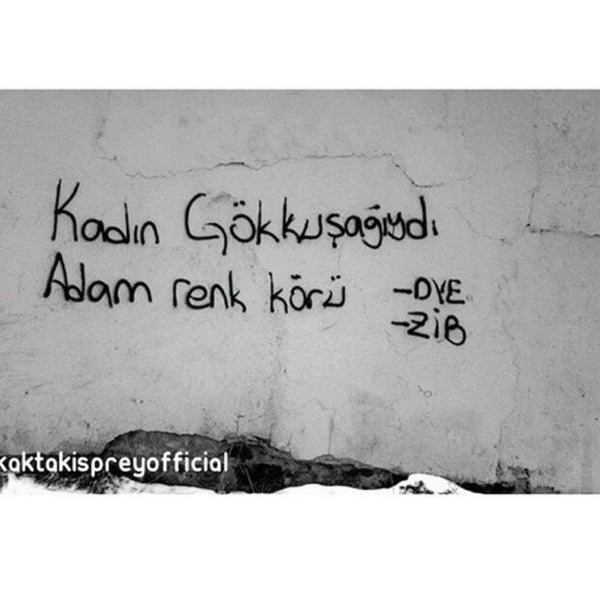 Kadın Gökkuşağıydı
Adam renk körü -DYE
-ZİB
kaktakispreyofficial